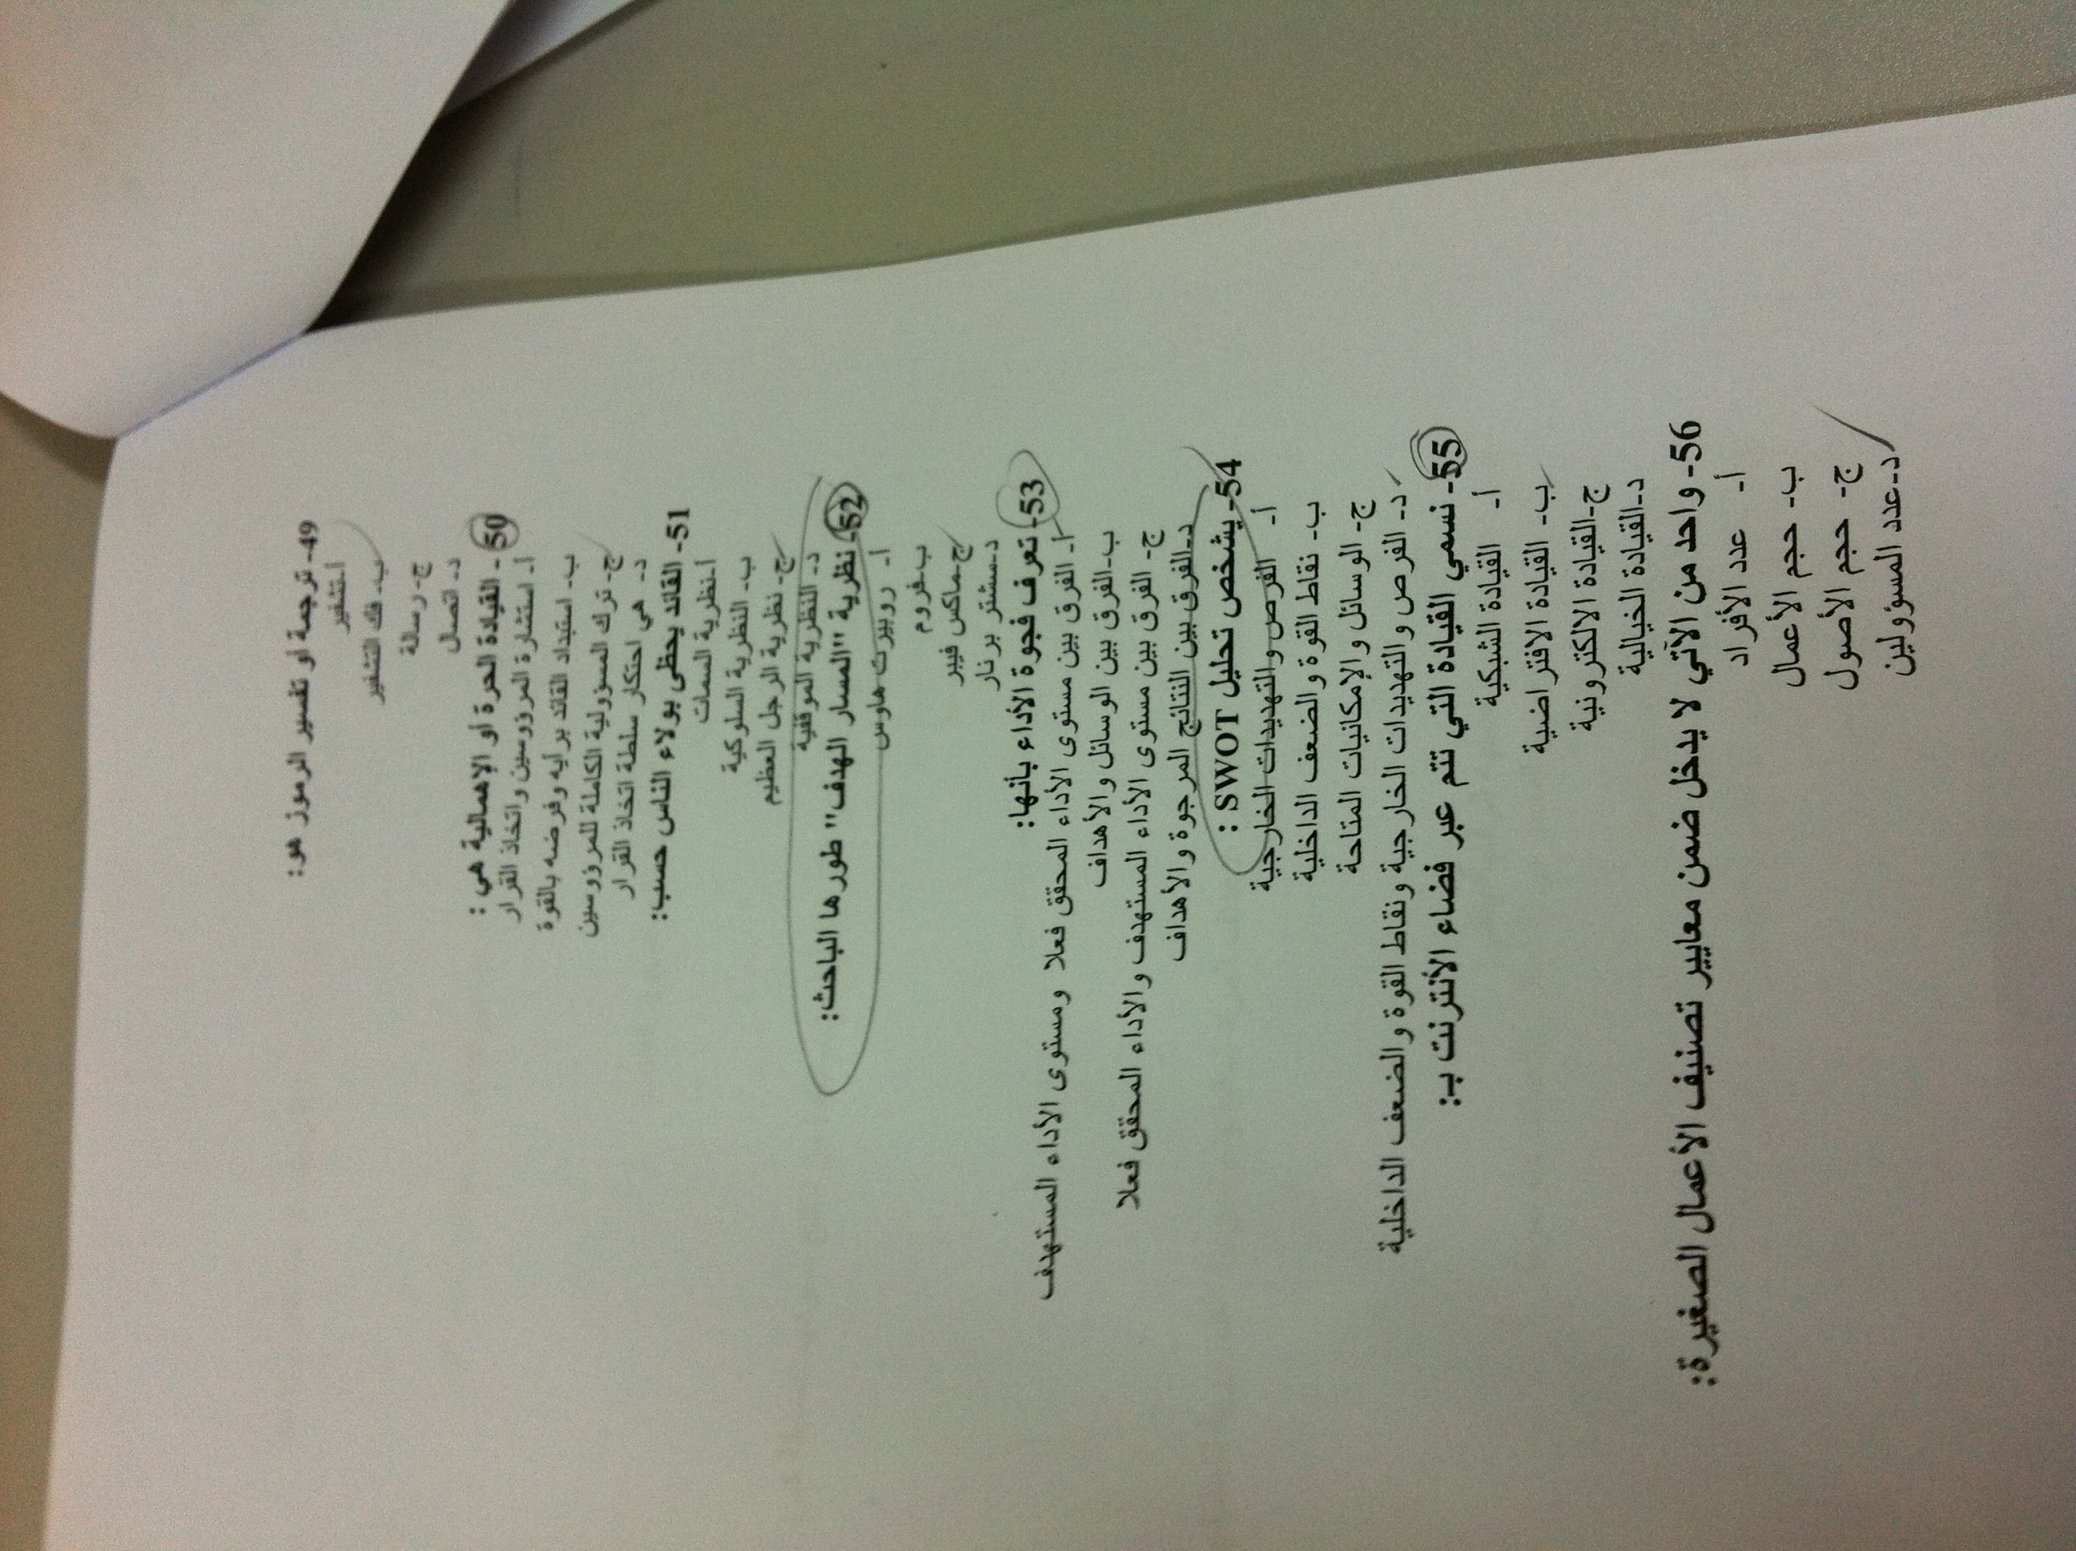 49- ترجمة أو تفسير الرموز هو:
أ-تشفير
ب- فك التشفير
ج- رسالة
د- اتصال
50- القيادة الحرة أو الإهمالية هي :
أ- استشارة المرؤوسين واتخاذ القرار
ب- استبداد القائد برأيه وفرضه بالقوة
ج- ترك المسؤولية الكاملة للمرؤوسين
د- هي احتكار سلطة اتخاذ القرار
51- القائد يحظى بولاء الناس حسب:
أ-نظرية السمات
ب- النظرية السلوكية
ج- نظرية الرجل العظيم
د- النظرية الموقفية
52- نظرية "المسار الهدف" طورها الباحث:
أ- روبيرت هاوس
ب-فروم
ج-ماكس فيبر
د-مشتر برنار
53- تعرف فجوة الأداء بأنها:
أ- الفرق بين مستوى الأداء المحقق فعلا ومستوى الأداء المستهدف
ب-الفرق بين الوسائل والأهداف
ج- الفرق بين مستوى الأداء المستهدف والأداء المحقق فعلا
د-الفرق بين النتائج المرجوة والأهداف
54- يشخص تحليل SWOT :
أ- الفرص والتهديدات الخارجية
ب- نقاط القوة والضعف الداخلية
ج- الوسائل والإمكانيات المتاحة
د- الفرص والتهديدات الخارجية ونقاط القوة والضعف الداخلية
55- نسمي القيادة التي تتم عبر فضاء الأنترنت ب:
أ- القيادة الشبكية
ب- القيادة الافتراضية
ج-القيادة الالكترونية
د-القيادة الخيالية
56- واحد من الآتي لا يدخل ضمن معايير تصنيف الأعمال الصغيرة:
أ- عدد الأفراد
ب- حجم الأعمال
ج- حجم الأصول
د-عدد المسؤولين